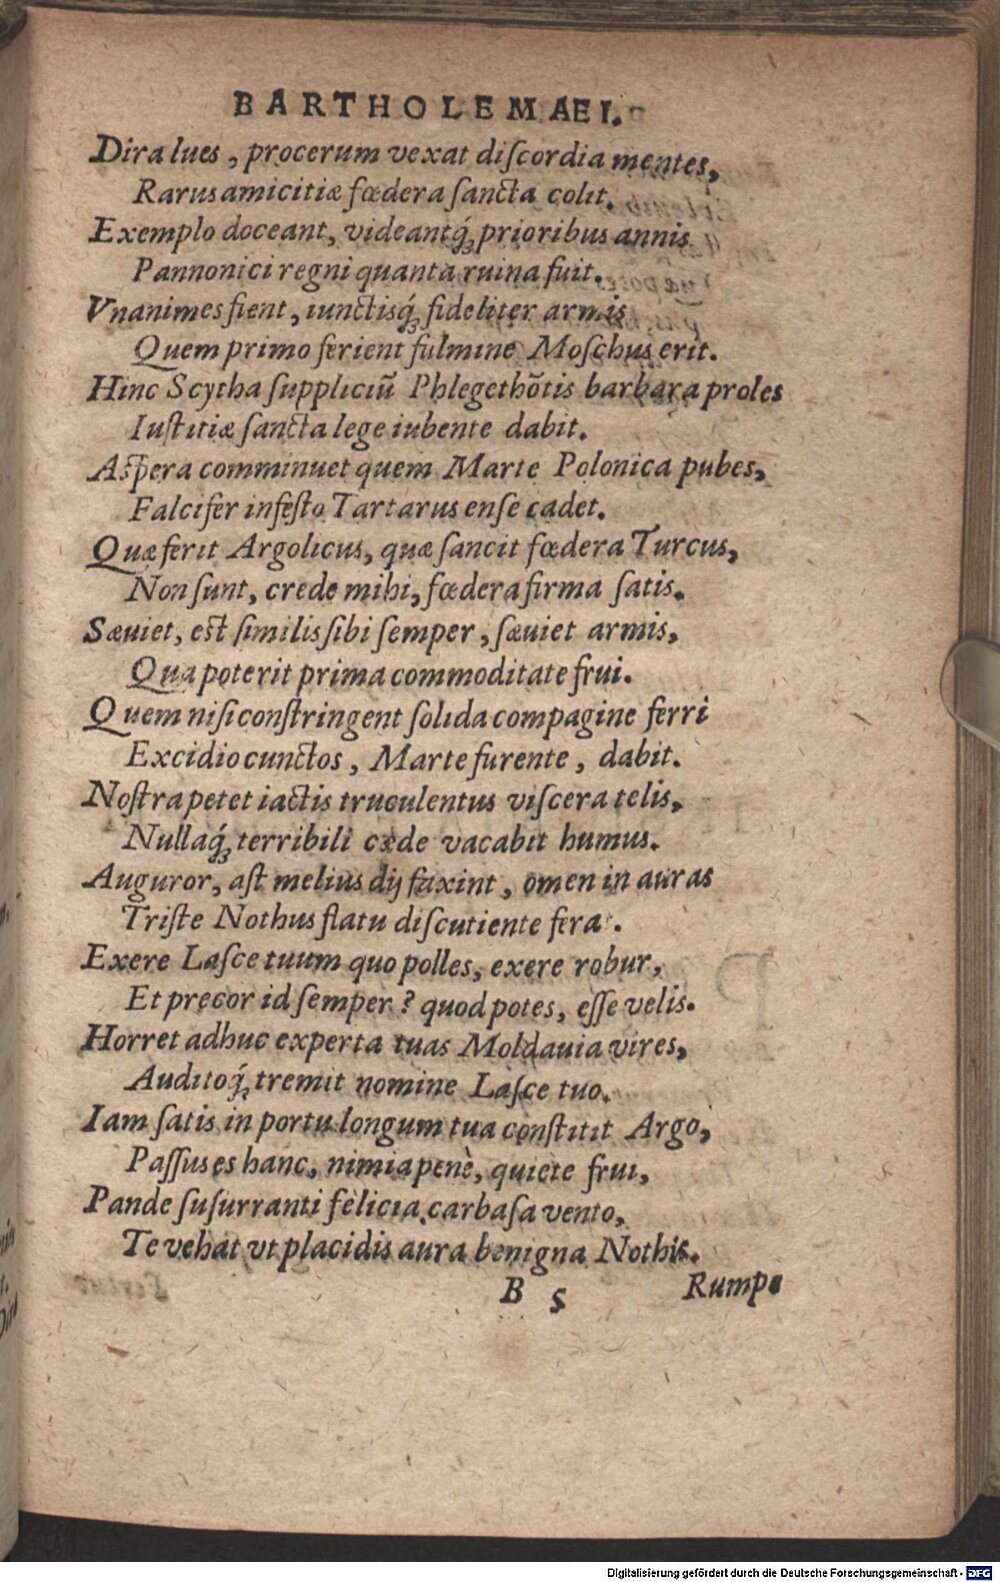 BARTHOLEMAEI.
Dira lues, procerum vexat diſcordia mentes,
Rarus amicitiæ fœdera ſancta colit.
Exemplo doceant, videantq́ꝫ prioribus annis
Pannonici regni quanta ruina fuit.
Vnanimes fient, iunctisq́ꝫ fideliter armis
Quem primo ferient fulmine Moſchus erit.
Hinc Scytha ſuppliciũ Phlegethõtis barbara proles
Iuſtitiæ ſancta lege iubente dabit.
Aſpera comminuet quem Marte Polonica pubes,
Falcifer infeſto Tartarus enſe cadet.
Quæ ferit Argolicus, quæ ſancit fœdera Turcus,
Non ſunt, crede mihi, fœdera firma ſatis.
Sæuiet, eſt ſimilis ſibi ſemper, ſæuiet armis,
Qua poterit prima commoditate frui.
Quem niſi conſtringent ſolida compagine ferri
Excidio cunctos, Marte furente, dabit.
Noſtra petet iactis truculentus viſcera telis,
Nullaq́ꝫ terribili cæde vacabit humus.
Auguror, aſt melius dij faxint, omen in auras
Triſte Nothus flatu diſcutiente fera.
Exere Laſce tuum quo polles, exere robur,
Et precor id ſemper? quod potes, eſſe velis.
Horret adhuc experta tuas Moldauia vires,
Auditoq́ꝫ tremit nomine Laſce tuo.
Iam ſatis in portu longum tua conſtitit Argo,
Paſſus es hanc, nimia penè, quiete frui,
Pande ſuſurranti felicia carbaſa vento,
Te vehat vt placidis aura benigna Nothis.
B 5 Rumpe
Digitalisierung gefördert durch die Deutsche Forschungsgemeinschaft - DFG